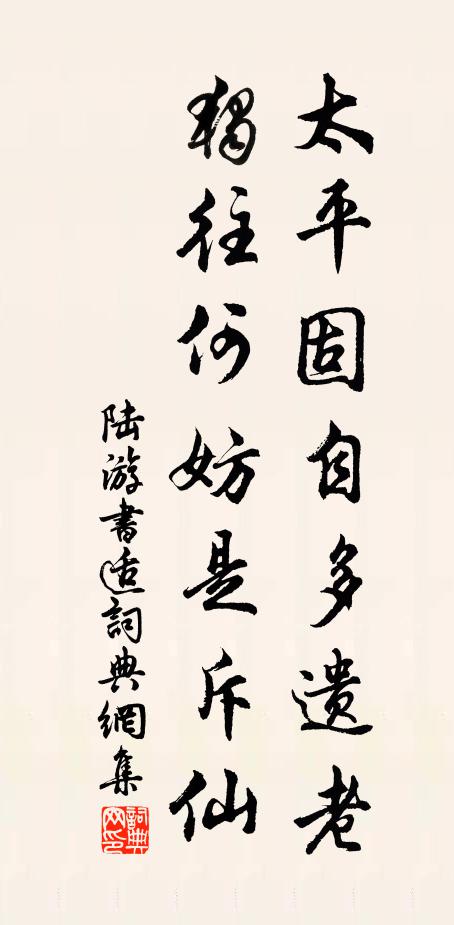 太平固自多遺老
獨往何妨是斥仙
陸游書适詞典網集
詞典網印